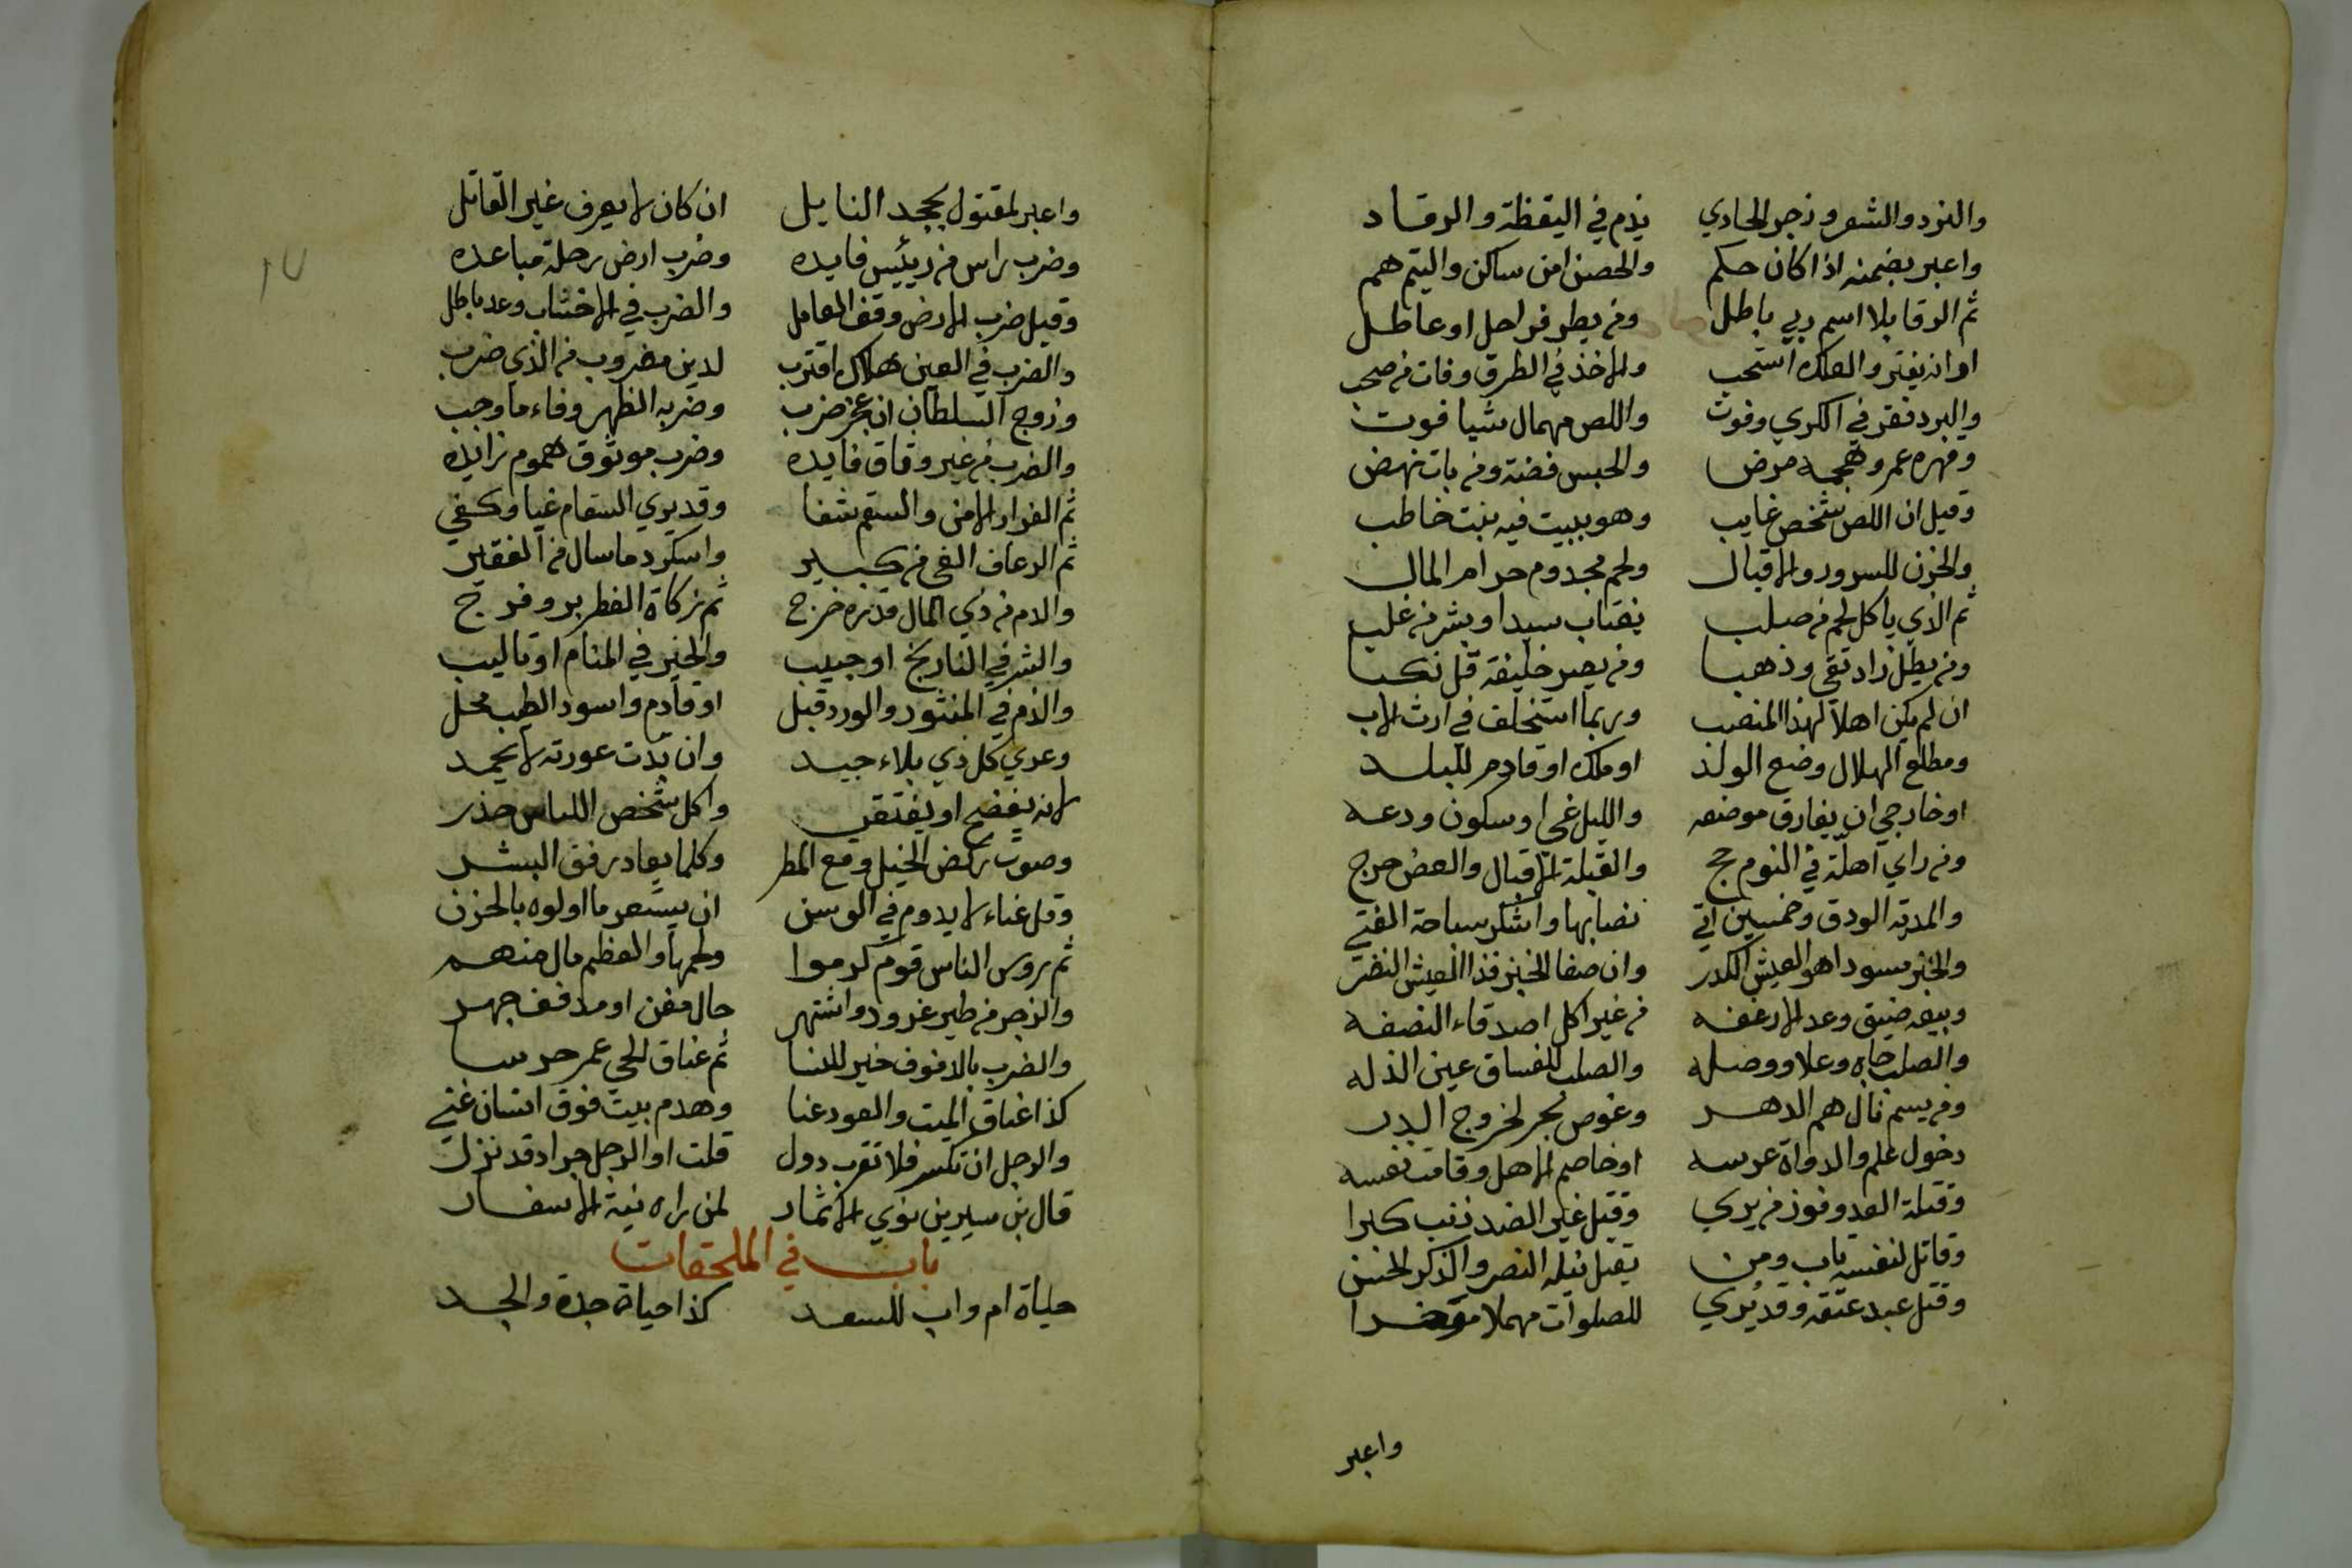 والنرد والشعر وزجر الحادي يذم في اليقظة والرقاد
واعبر بضمنه اذا كان حكم والحصن امن ساكن واليتم هم
ثم الرقا بلا اسم ربي باطل ومن يطر فراحل او عاطل
او انه يفتر والعلك استحب والاخذ في الطرق وفات من صحب
والبرد فقر في الكري وفوت واللص مهمال شيا فوت
ومهره عمر وهجمه مرض والحبس فضة ومن بات نهض
وقيل ان اللص شخص غايب وهو ببيت فيه بنت خاطب
والحزن للسرور والاقبال ولحم مجدوم حرام المال
ثم الذي ياكل لحم من صلب يغتاب سيدا وبشر من غلب
ومن يطل زاد تقي وذهبا ومن يصر خليفة قل نكبا
ان لم يكن اهلا لهذا المنصب وربما استخلف في ارث الاب
ومطلع الهلال وضع الولد او ملك او قادم للبلد
او خارجي ان يفارق موضعه والليل غي او سكون ودعه
ومن راي اهلة في النوم حج والقبلة الاقبال والعض حرج
والمدية الودق وخمسين اتي نصابها واشكر سباحة الفتي
والخبز مسودا هو العيش الكدر وان صفا الخبز فذا العيش النضر
وبيعه ضيق وعد الارغفه من غير اكل اصدقاء النصفه
والصلب جاه وعلا ووصله والصلب للفساق عين الذله
ومن يسم نال هم الدهر وغوص بحر لخروج الدر
دخول علم والدواة عرسه او خاصم الاهل وقامت نفسه
وقتلة العدو فوز من يري وقيل غير الضد ذنب كبرا
وقاتل لنفسه تاب ومن يقبل نيله النصر والذكر الحسن
وقتل عبد عتقه وقد يري للصلوات مهملا مؤخرا
واعبر
واعبر لمقتول بجحد النايل ان كان لا يعرف غير القاتل
وضرب راس من رئيس فايده وضرب ارض رحلة مباعده
وقيل ضرب الارض وقف العامل والضرب في الاخشاب وعد باطل
والضرب في العين هلاك اقترب لدين مضروب من الذي ضرب
وزوج السلطان ان عجز ضرب وضربه الظهر وفاء ما وجب
والضرب من غير وقاق فايده وضرب موثوق هموم زايده
ثم الفرار الامن والسقم شفا وقد يري السقام غيا وكفي
ثم الرعاف الغي من كبير واسكرد ما سال من الفقير
والدم من ذي المال قد نره خرج ثم زكاة الفطر بر وفرج
والشر في التاريخ او جبيب والخير في المنام او تاليب
والذم في المنثور والورد قبل او قادم واسود الطيب محل
وعري كل ذي بلاء جيد وان بدت عورته لا يحمد
لانه يفضح او يفتقر واكل شخص اللباس حذر
وصوت ركض الخيل ومع المطر وكلما يعاد رفق البشر
وقل غناء لا يدوم في الوسن ان يستعر ما اولوه بالحزن
ثم روس الناس قوم كرموا ولحمها والعظم مال منهم
والزجر من طير غرود واشتهر حال مغن او مدفف جهر
والضرب بالدفوف خير للنسا ثم عناق الحي عمر حرسا
كذا عناق الميت والعود عنا وهدم بيت فوق انسان غني
والرجل ان تكسر فلا تقرب دول قلت او الرجل جراد قد نزل
قال بن سيرين نوي الاثمار لمن راه نية الاسفار
باب في الملحقات
حياة ام واب للسعد كذا حياة جدة والجد